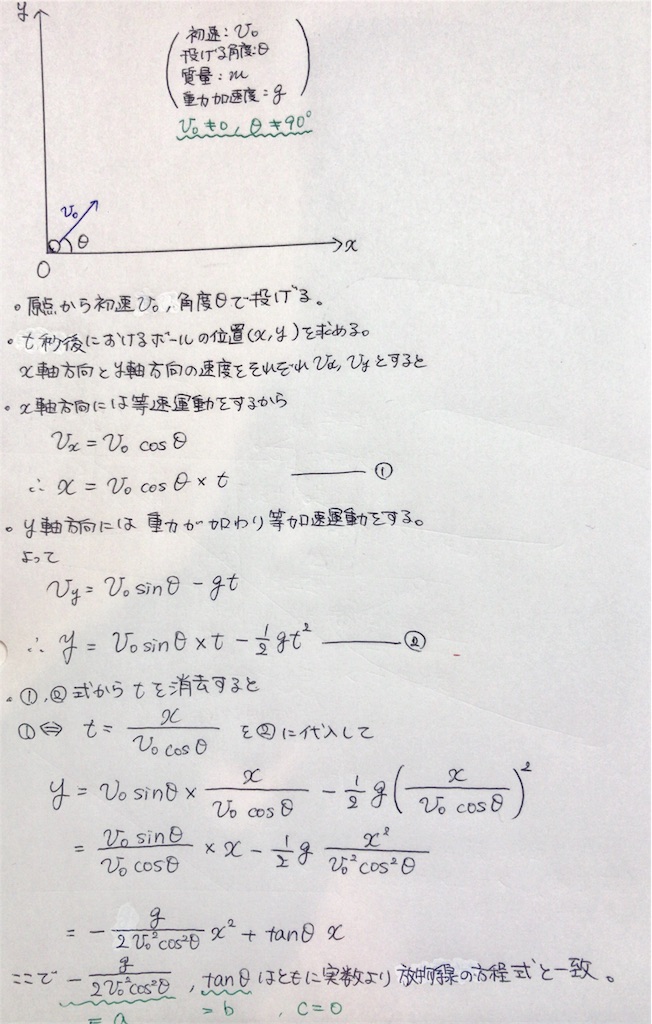 y
初速:v₀
投げる角度:θ
質量:m
重力加速度:g
v₀≠0, θ≠90°
v₀
θ
x
O
・原点から初速v₀,角度θで投げる。
・t秒後におけるボールの位置(x,y)を求める。
x軸方向とy軸方向の速度をそれぞれvx,vyとすると
・x軸方向には等速運動をするから
vx = v₀ cosθ
∴ x = v₀ cosθ × t ――― ①
・y軸方向には重力が加わり等加速運動をする。
よって
vy = v₀ sinθ - gt
∴ y = v₀ sinθ × t - 1/2 gt² ――― ②
・①,②式からtを消去すると
①⇔ t = x/(v₀ cosθ) を②に代入して
y = v₀ sinθ × x/(v₀ cosθ) - 1/2 g (x/(v₀ cosθ))²
= (v₀ sinθ)/(v₀ cosθ) × x - 1/2 g x²/(v₀² cos²θ)
= - g/(2v₀² cos²θ) x² + tanθ x
ここで - g/(2v₀² cos²θ) , tanθ はともに実数より 放物線の方程式と一致。
= a = b , c = 0